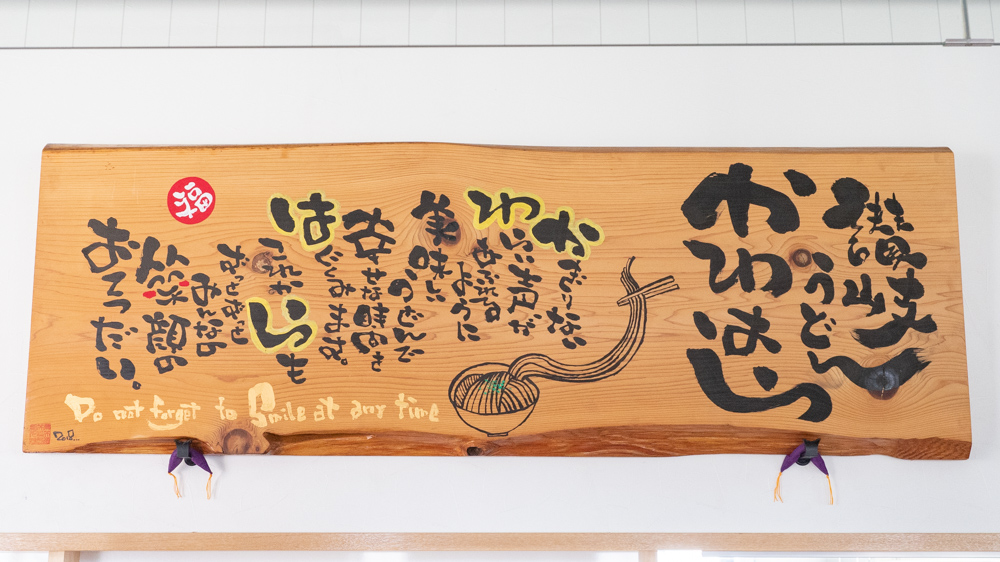 うどん
かわはら
かぎりない
わらい声が
あふれる
ように
美味しい
うどんで
幸せな時間を
はぐくみます。
これからも
みんなの
笑顔の
おてつだい。
福
Do not forget to Smile at any time